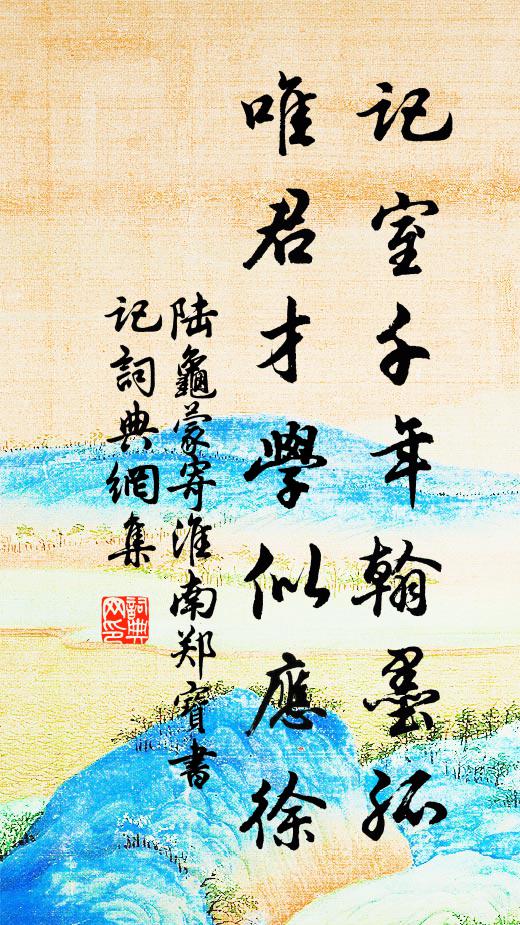 記室千年翰墨孤
唯君才學似應徐
陆龜蒙寄淮南郑寳書
記詞典網集
詞典
网印